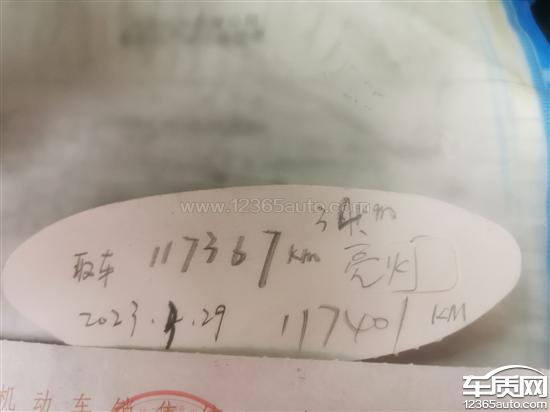 www.12365auto.com
34km
取车 117367km 亮灯
2023.4.29 117401KM
机动车销售
车质网
12365auto.com